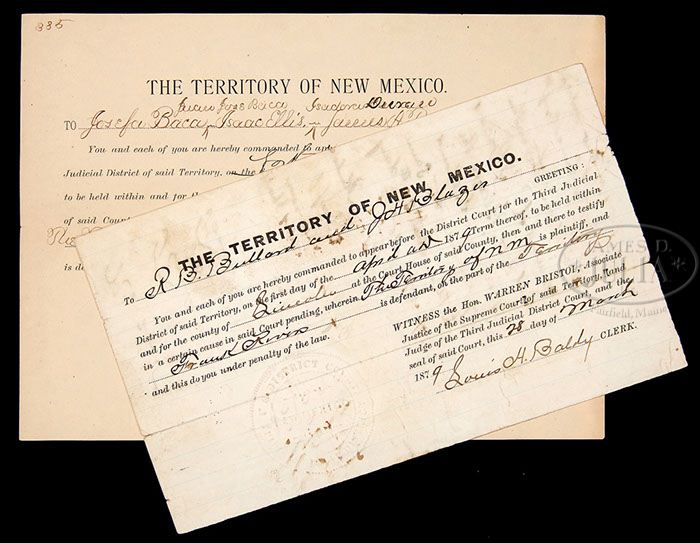 335
THE TERRITORY OF NEW MEXICO.
Juan Jose Baca Isadora
TO Josefa Baca, Isaac Ellis, James A
You and each of you are hereby commanded to
Judicial District of said Territory, on the
to be held within and for th
of said Cour
is d
THE TERRITORY OF NEW MEXICO.
GREETING:
To R. B. Bullard and J H Blazer
You and each of you are hereby commanded to appear before the District Court for the Third Judicial
District of said Territory, on the first day of the April 1879 Term thereof, to be held within
and for the county of Lincoln at the Court House of said County, then and there to testify
in a certain cause in said Court pending, wherein The Territory of N M is plaintiff, and
Frank Rivers is defendant, on the part of the Territory
and this do you under penalty of the law.
WITNESS the Hon. WARREN BRISTOL, Associate
Justice of the Supreme Court of said Territory, and
Judge of the Third Judicial District Court, and the
seal of said Court, this 28 day of March
1879 Louis H. Baldy CLERK.
JAMES D.
JULIA
Fairfield, Maine